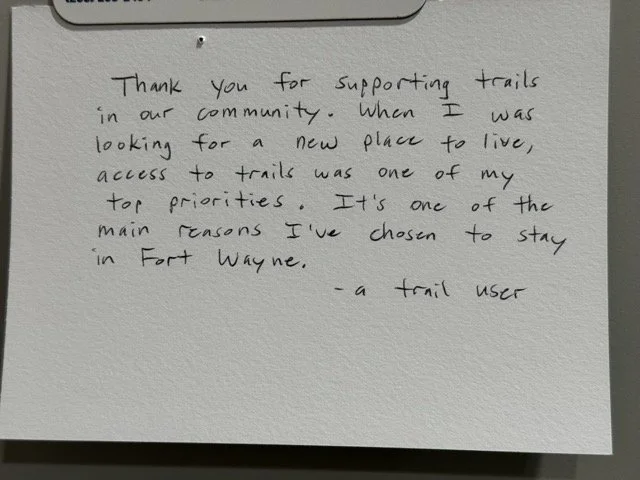 Thank you for supporting trails
in our community. When I was
looking for a new place to live,
access to trails was one of my
top priorities. It's one of the
main reasons I've chosen to stay
in Fort Wayne.
- a trail user